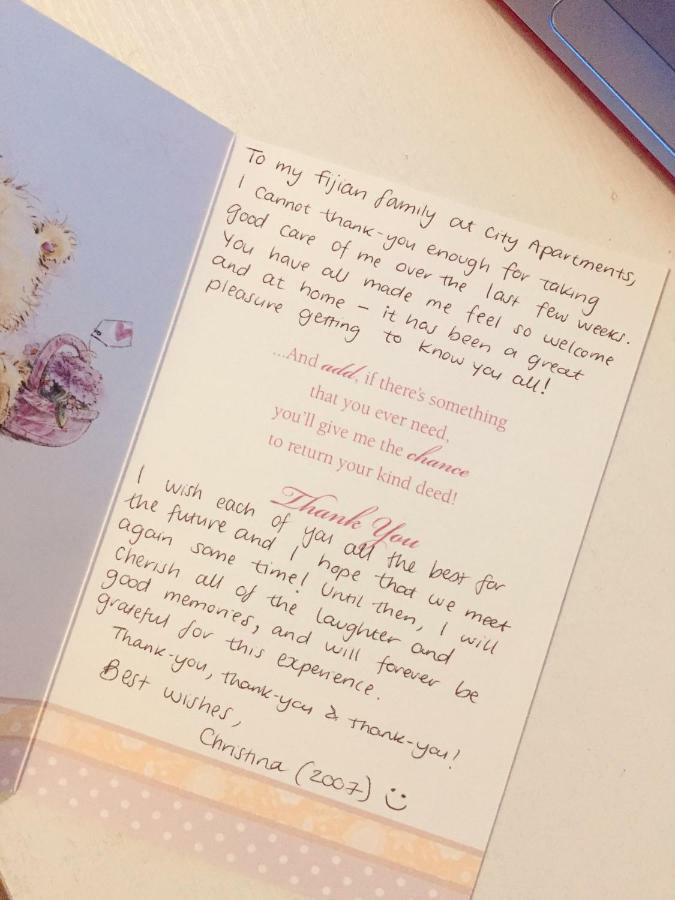 To my Fijian family at City Apartments,
I cannot thank-you enough for taking
good care of me over the last few weeks.
You have all made me feel so welcome
and at home - it has been a great
pleasure getting to know you all!
...And add, if there's something
that you ever need,
you'll give me the chance
to return your kind deed!
Thank You
I wish each of you all the best for
the future and I hope that we meet
again some time! Until then, I will
cherish all of the laughter and
good memories, and will forever be
grateful for this experience.
Thank-you, thank-you & thank-you!
Best wishes,
Christina (2007) :)